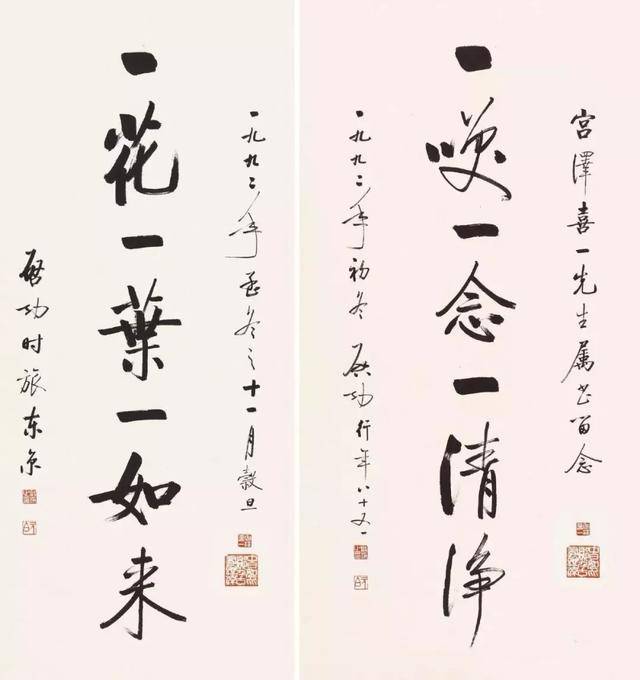 宫澤喜一先生属书留念
一咲一念一清净
一九九二年初冬 啟功行年八十又一
一九九二年孟冬之十一月穀旦
一花一葉一如来
啟功时旅东京